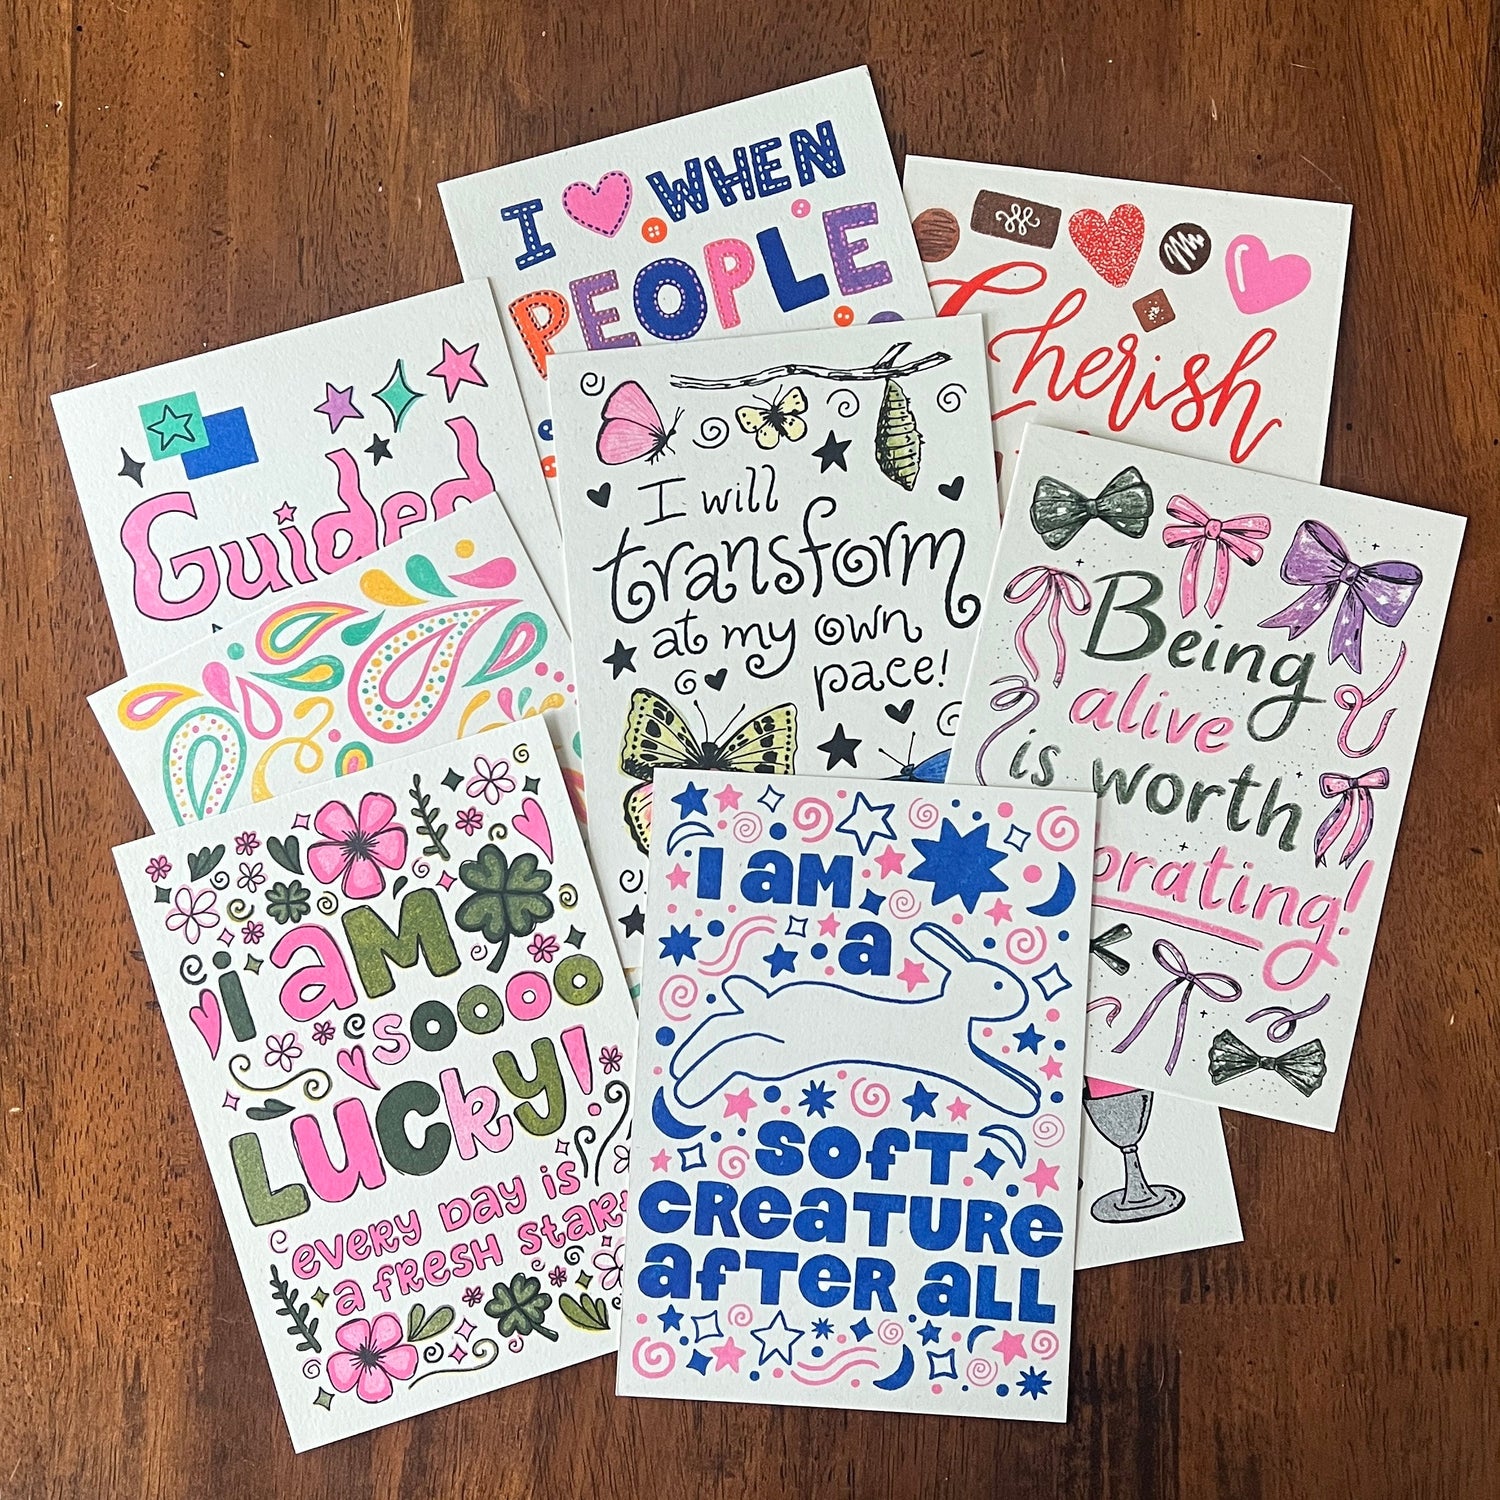 I WHEN
PEOPLE
Cherish
Guided
I will
transform
at my own
pace!
Being
alive
is worth
i am
soooo
Lucky!
every day is
a fresh start
I am
a
soft
creature
after all